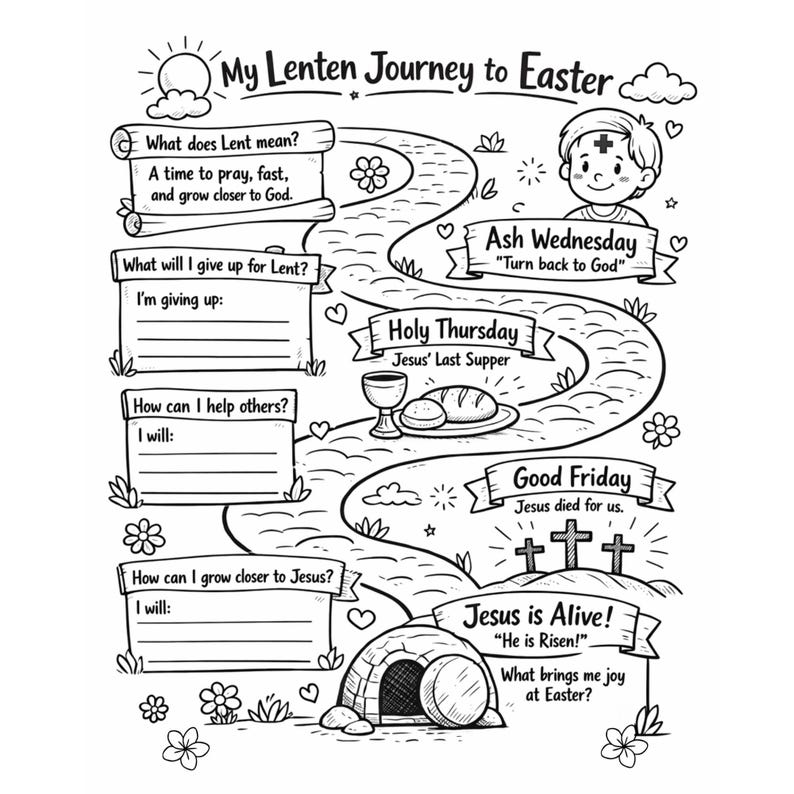 My Lenten Journey to Easter
What does Lent mean?
A time to pray, fast,
and grow closer to God.
Ash Wednesday
"Turn back to God"
What will I give up for Lent?
I'm giving up:
Holy Thursday
Jesus' Last Supper
How can I help others?
I will:
Good Friday
Jesus died for us.
How can I grow closer to Jesus?
I will:
Jesus is Alive!
"He is Risen!"
What brings me joy
at Easter?